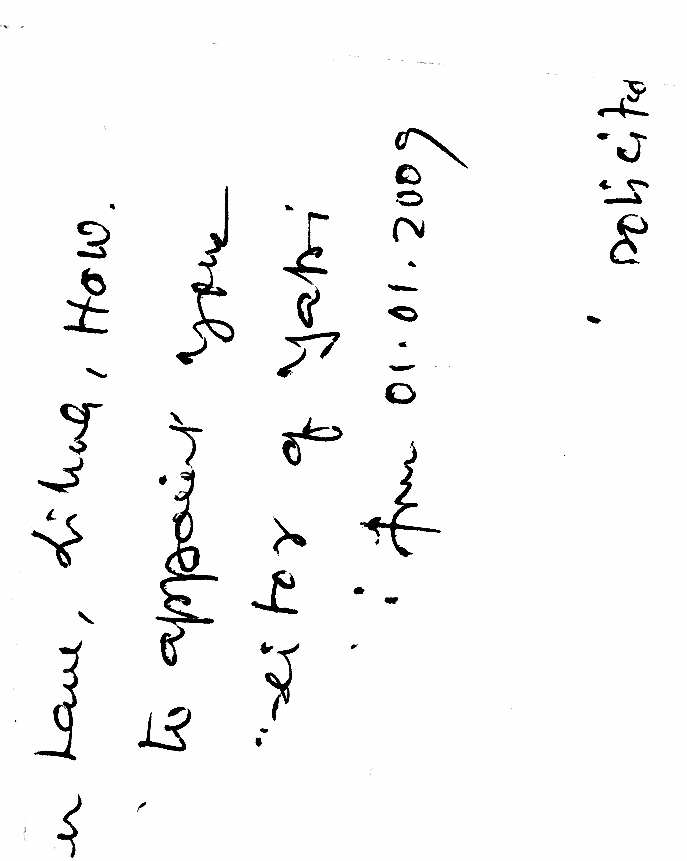 er Lane, Liluah, How.
to appoint your
itor of Yapi
from 01.01.2009
policita